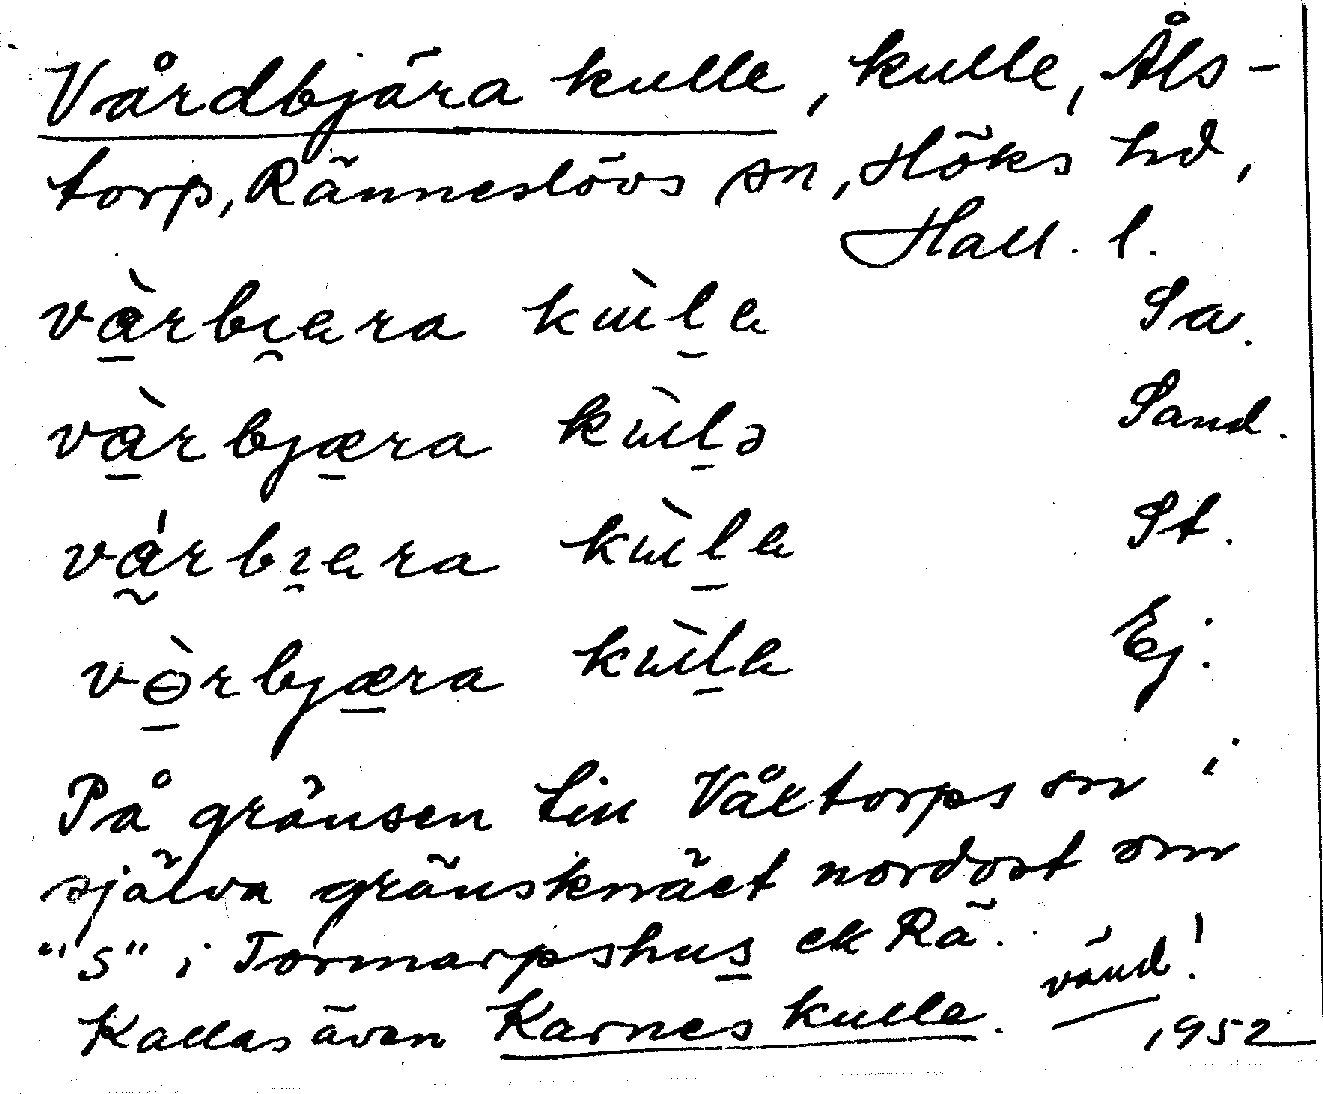 Vårdbjära kulle, kulle, Åls-
torp, Ränneslövs sn, Höks hd,
Hall. l.
vàrbıara kùla Sa.
vàrbjæra kùlə Sand.
várbıara kùla St.
vòrbjæra kùla Ej.
På gränsen till Våxtorps sn i
själva gränsknäet nordost om
"s" i Tormarpshus ek Rä.
vänd!
Kallas även Karnes kulle.
1952